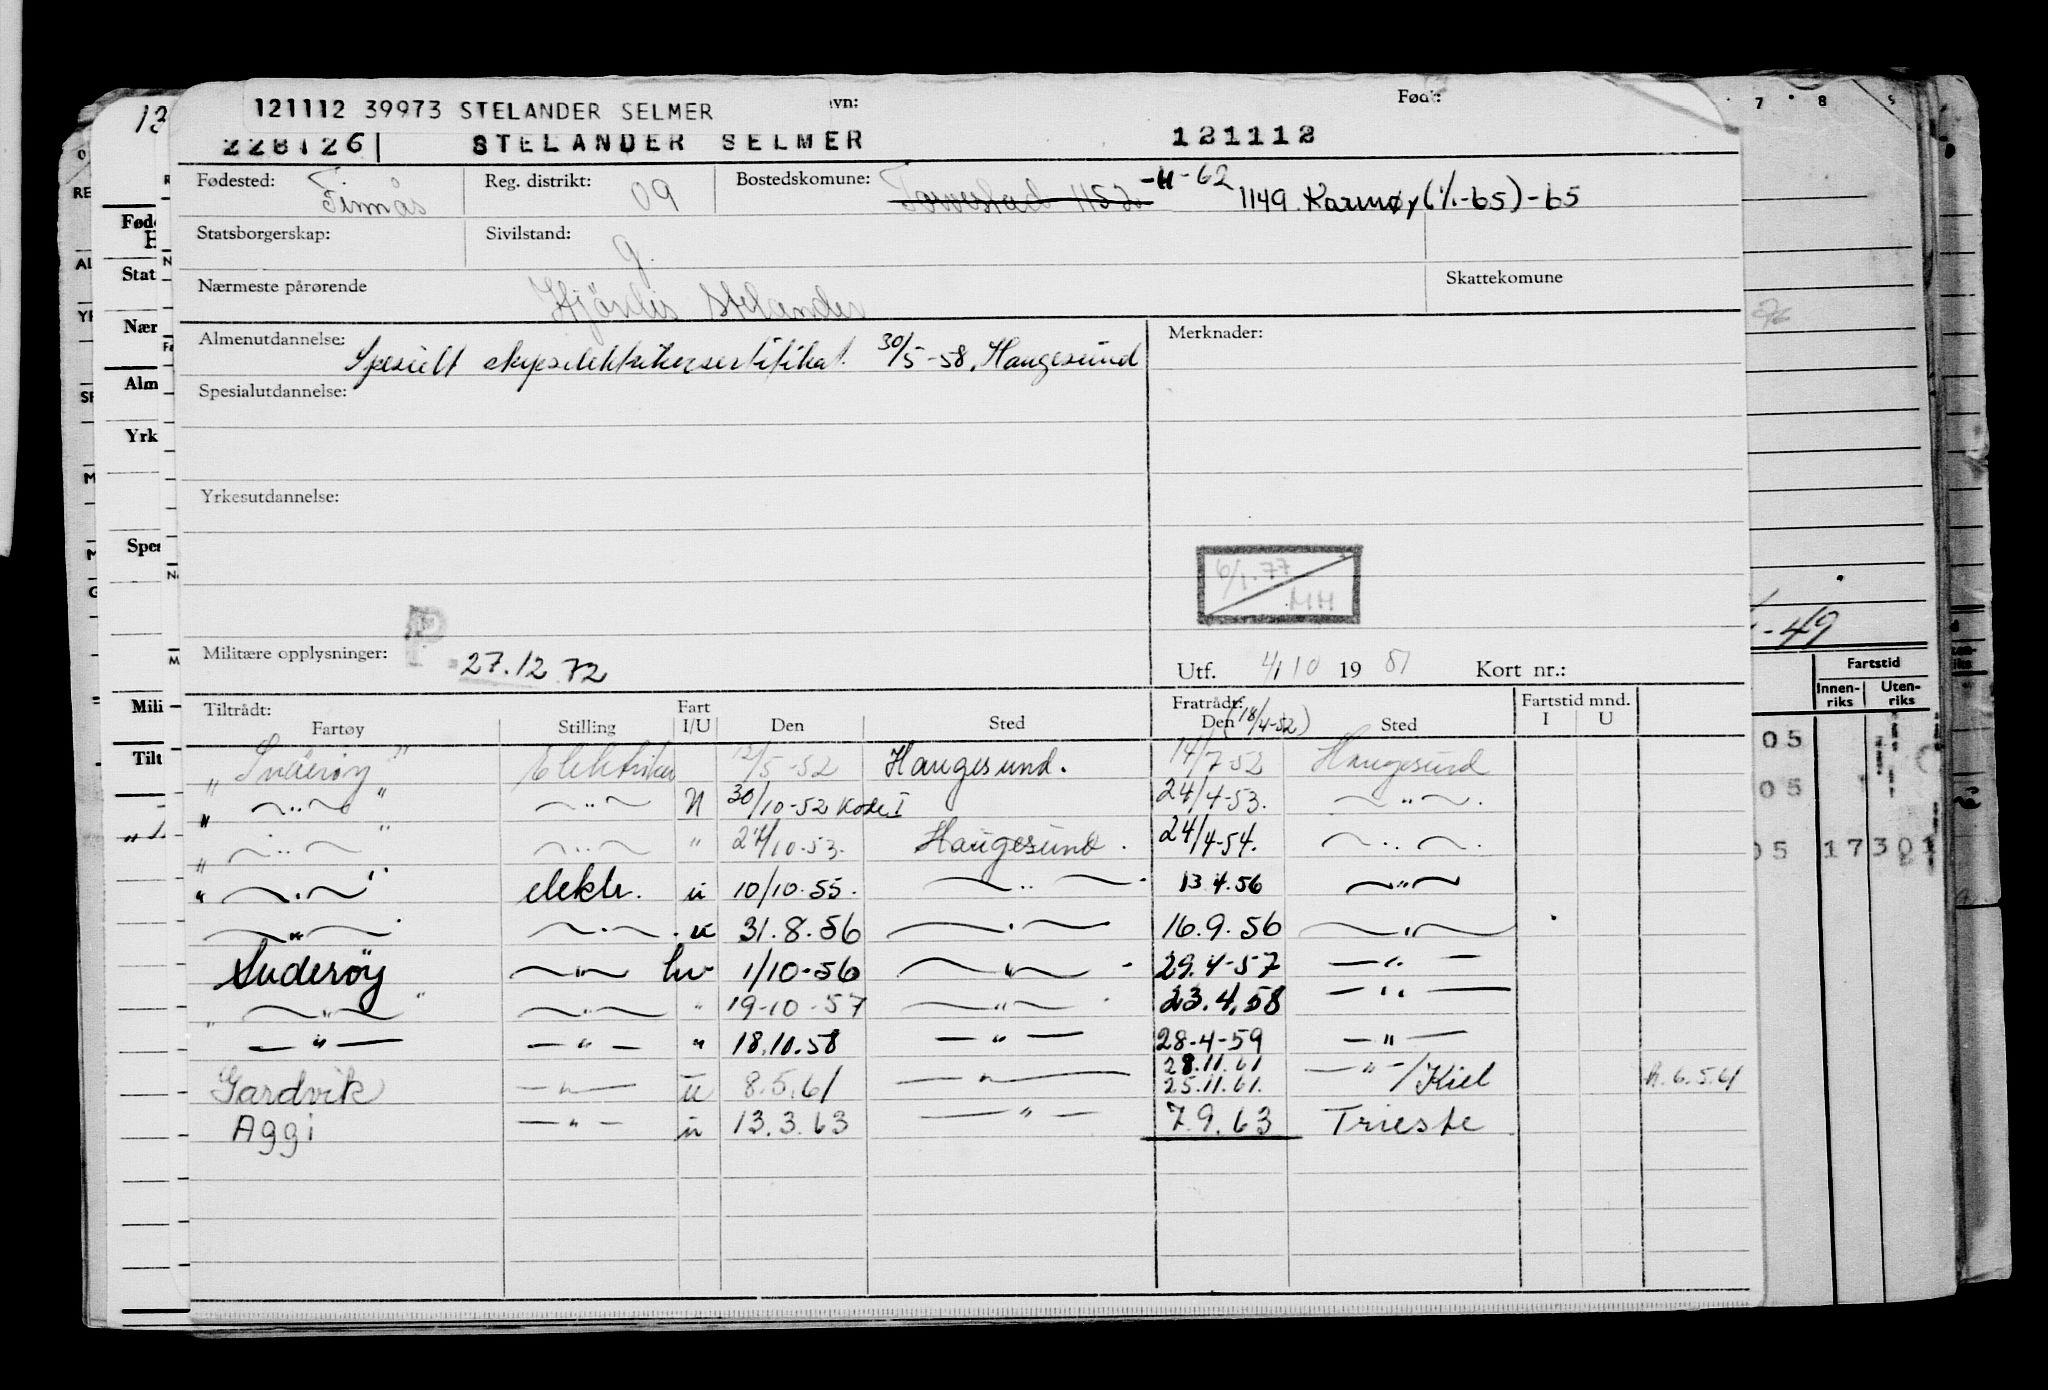 121112 39973 STELANDER SELMER
vn:
Født:
228126 STELANDER SELMER 121112
Fødested: Finnås
Reg. distrikt: 09
Bostedskomune: Torvestad 1152 -11-62 1149 Karmøy (1/1-65)-65
Statsborgerskap:
Sivilstand: g.
Nærmeste pårørende Hjördis Stelander
Skattekomune
Almenutdannelse: Spesielt skipselektrikersertifikat. 30/5-58, Haugesund
Merknader:
Spesialutdannelse:
Yrkesutdannelse:
6/1.77
MH
Militære opplysninger: P 27.12.72
Utf. 4/10 1951 Kort nr.:
Tiltrådt:
Fart
Fratrådt: (18/4-52)
Fartstid mnd.
Fartøy Stilling I/U Den Sted Den Sted I U
" Suderøy " Elektriker 12/5-52 Haugesund. 14/7-52 Haugesund
" — " — " — " — U 30/10-52 Kode I 24/4-53. — " —.
" — " — " — " — " 24/10-53. Haugesund. 24/4-54. — " —.
" — " — " elektr. u 10/10-55. — " —. 13.4.56 — " —
— " — — " — u 31.8.56 — " — 16.9.56 — " —
Suderøy — " — hv 1/10-56 — " — 29.4-57 — " —
" — " — " — " — " 19-10-57 — " — 23.4.58 — " —
— " — — " — " 18.10.58 — " — 28-4-59 — " —
28.11.61
Gardvik — " — u 8.5.61 — " — 25.11.61. — " — /Kiel R. 6.5.61
Aggi — " — u 13.3.63 — " — 7.9.63 Trieste
13
Stat
Nær
Alm
Yrk
Spe
Mili
Tilt
7 8
-49
Fartstid
Innen-riks Uten-riks
05
05
05 17301